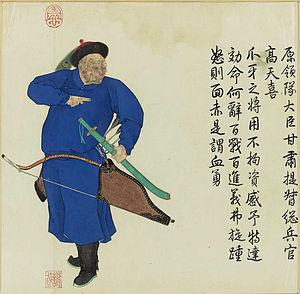 原領隊大臣甘肅提督緫兵官
高天喜
爪牙之將用不拘資感予特達
効命何辭百戰百進義弗旋踵
怒則面赤是謂血勇